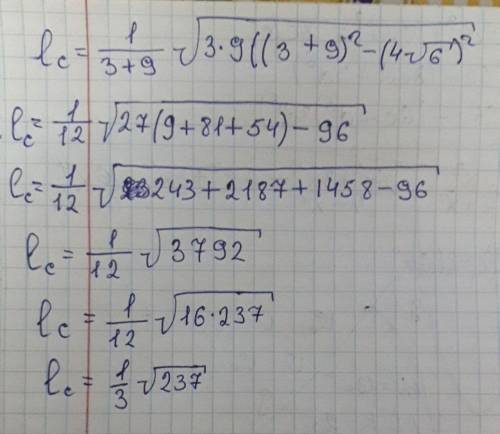 l_c = 1/(3+9) √(3·9((3+9)²-(4√6)²)
l_c = 1/12 √(27(9+81+54)-96)
l_c = 1/12 √(243+2187+1458-96)
l_c = 1/12 √(3792)
l_c = 1/12 √(16·237)
l_c = 1/3 √(237)